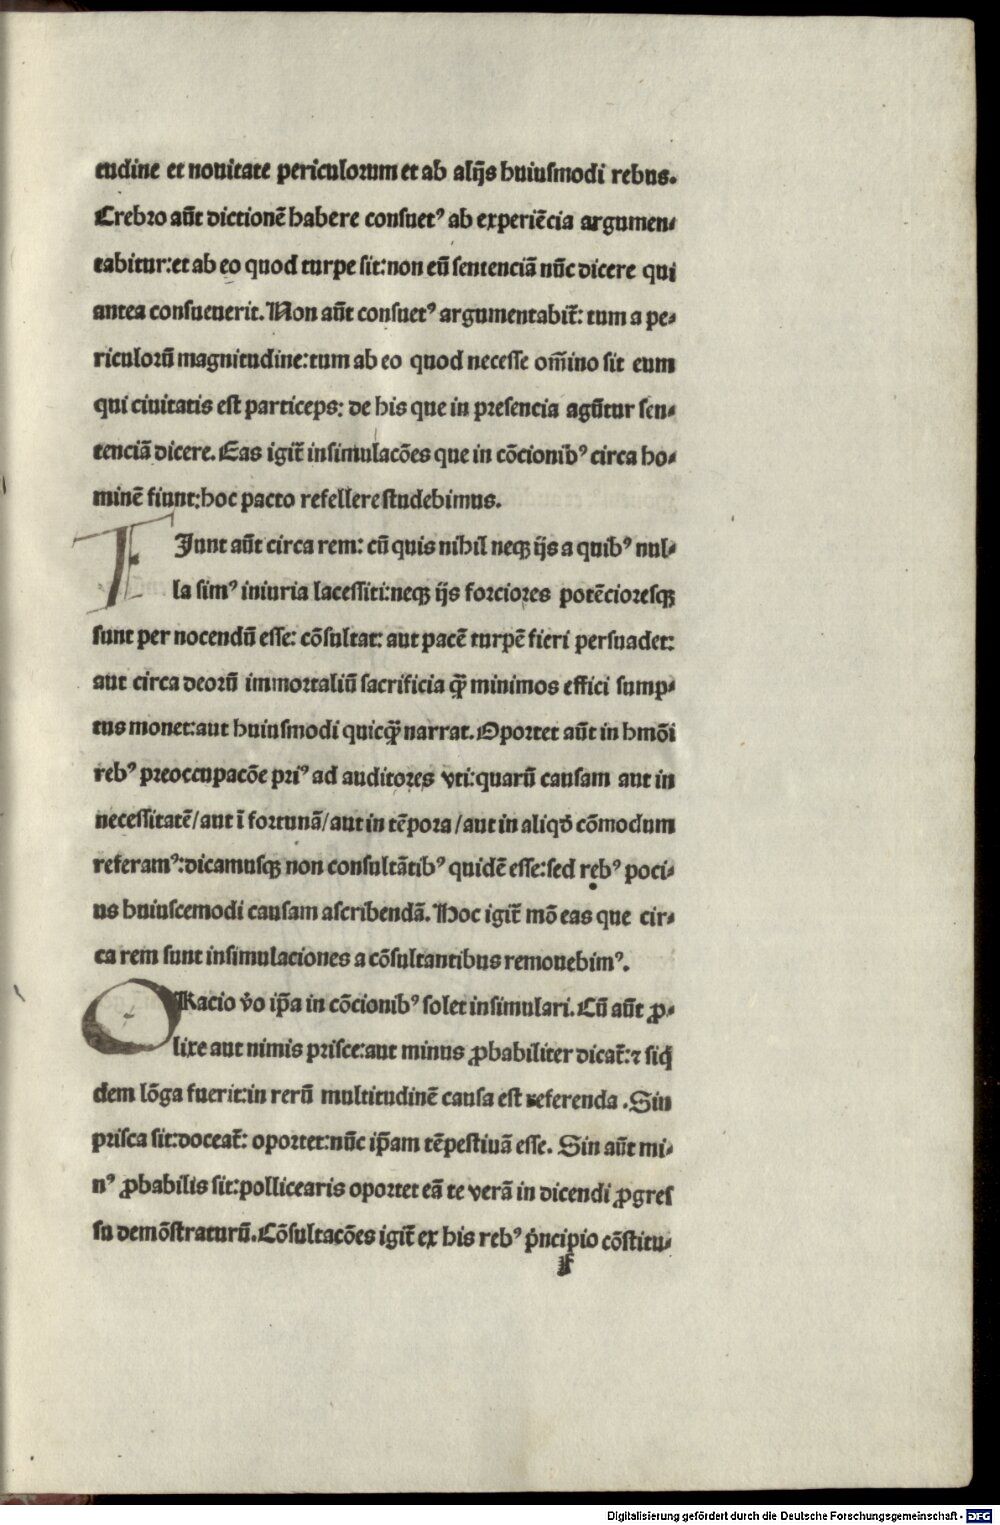 tudine et nouitate periculorum et ab alijs huiusmodi rebus.
Crebro aūt dictionē habere consuetꝰ ab experiēcia argumen⸗
tabitur:et ab eo quod turpe sit:non eū sentenciā nūc dicere qui
antea consueuerit. Non aūt consuetꝰ argumentabit̄: tum a pe⸗
riculorū magnitudine:tum ab eo quod necesse om̄ino sit eum
qui ciuitatis est particeps: de his que in presencia agūtur sen⸗
tenciā dicere. Eas igit̄ insimulacōes que in cōcionibꝰ circa ho⸗
minē fiunt:hoc pacto refellere studebimus.
FIunt aūt circa rem: cū quis nihil neqꝫ ijs a quibꝰ nul⸗
la simꝰ iniuria lacessiti:neqꝫ ijs forciores potēcioresqꝫ
sunt per nocendū esse: cōsultat: aut pacē turpē fieri persuadet:
aut circa deorū immortaliū sacrificia q̄ꝫ minimos effici sump⸗
tus monet:aut huiusmodi quicq̄ꝫ narrat. Oportet aūt in hmōi
rebꝰ preoccupacōe priꝰ ad auditores vti:quarū causam aut in
necessitatē/aut ī fortunā/aut in tēpora/aut in aliqd̄ cōmodum
referamꝰ:dicamusqꝫ non consultātibꝰ quidē esse:sed rebꝰ poci⸗
us huiuscemodi causam ascribendā. Hoc igit̄ mō eas que cir⸗
ca rem sunt insimulaciones a cōsultantibus remouebimꝰ.
ORacio v̄o ip̄a in cōcionibꝰ solet insimulari. Cū aūt ꝓ⸗
lixe aut nimis prisce:aut minus ꝓbabiliter dicat̄:⁊ siq̄
dem lōga fuerit:in rerū multitudinē causa est referenda. Sin
prisca sit:doceat̄: oportet:nūc ip̄am tēpestiuā esse. Sin aūt mi⸗
nꝰ ꝓbabilis sit:pollicearis oportet eā te verā in dicendi ꝓgres
su demōstraturū. Cōsultacōes igit̄ ex his rebꝰ p̄ncipio cōstitu⸗
f
Digitalisierung gefördert durch die Deutsche Forschungsgemeinschaft - DFG